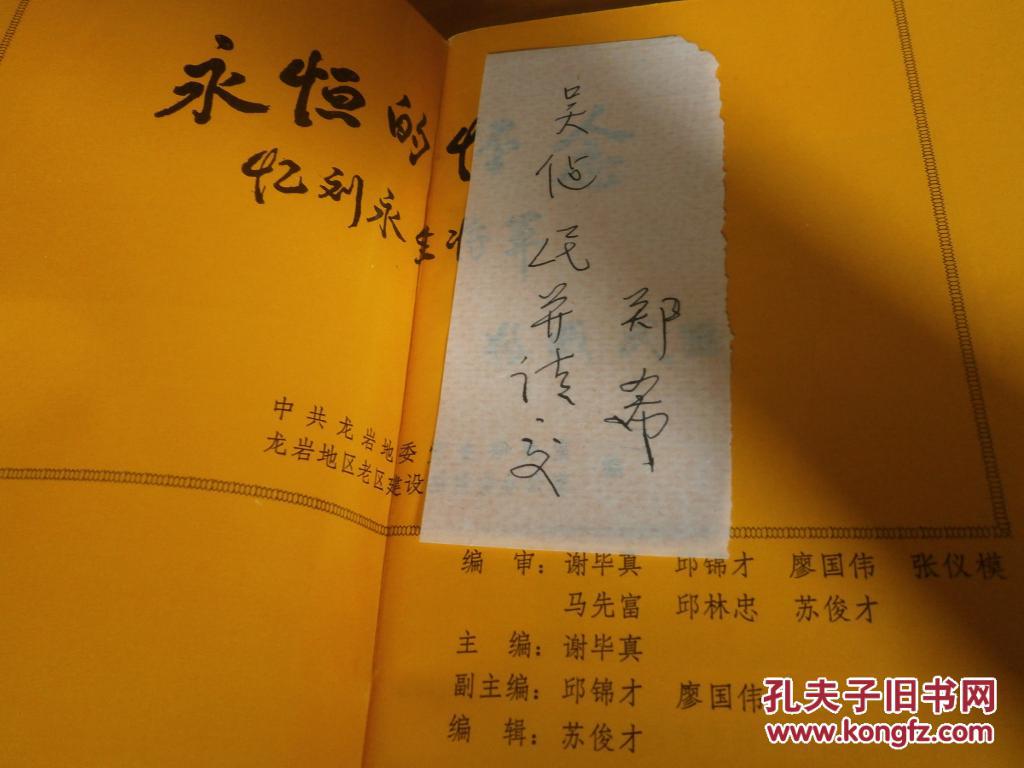 永恒的
忆刘永生将
中共龙岩地委
龙岩地区老区建设
吴
民并请交
郑希
编 审：谢毕真 邱锦才 廖国伟 张仪模
马先富 邱林忠 苏俊才
主 编：谢毕真
副主编：邱锦才 廖国伟
编 辑：苏俊才
孔夫子旧书网
www.kongfz.com